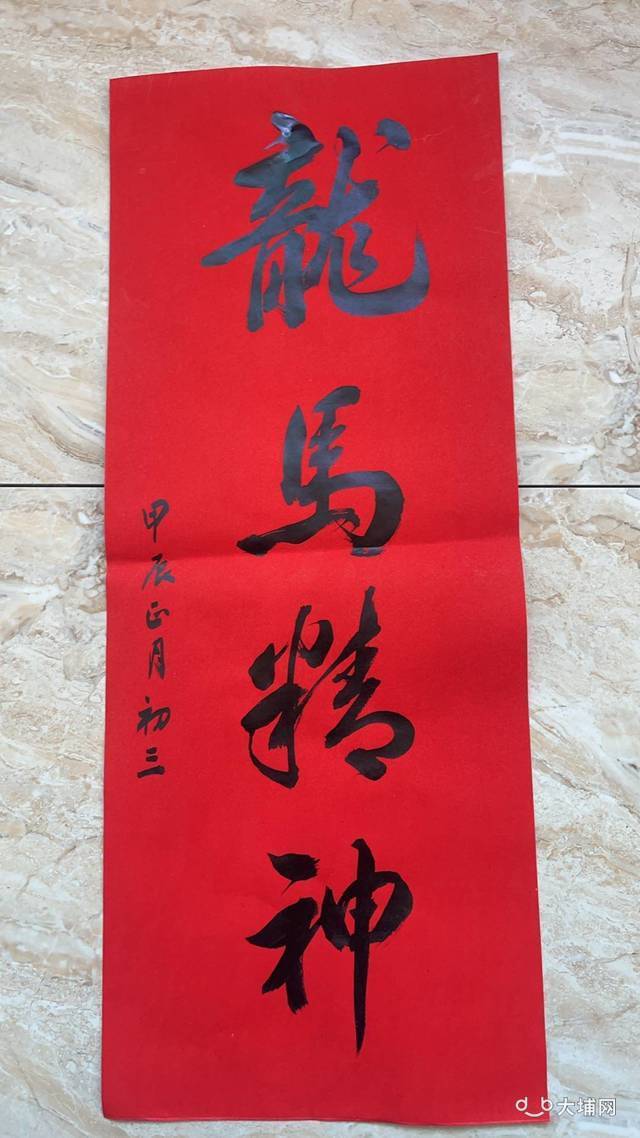 龍馬精神
甲辰正月初三
d_b大埔网